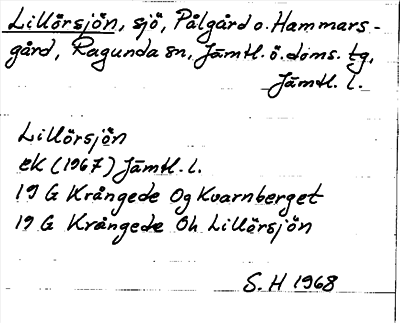 Lillörsjön, sjö, Pålgård o. Hammars-
gård, Ragunda sn, Jämtl. ö. doms. tg,
Jämtl. l.
Lillörsjön
ek (1967) Jämtl. l.
19 G Krångede Og Kvarnberget
19 G Krångede Oh Lillörsjön
S. H 1968